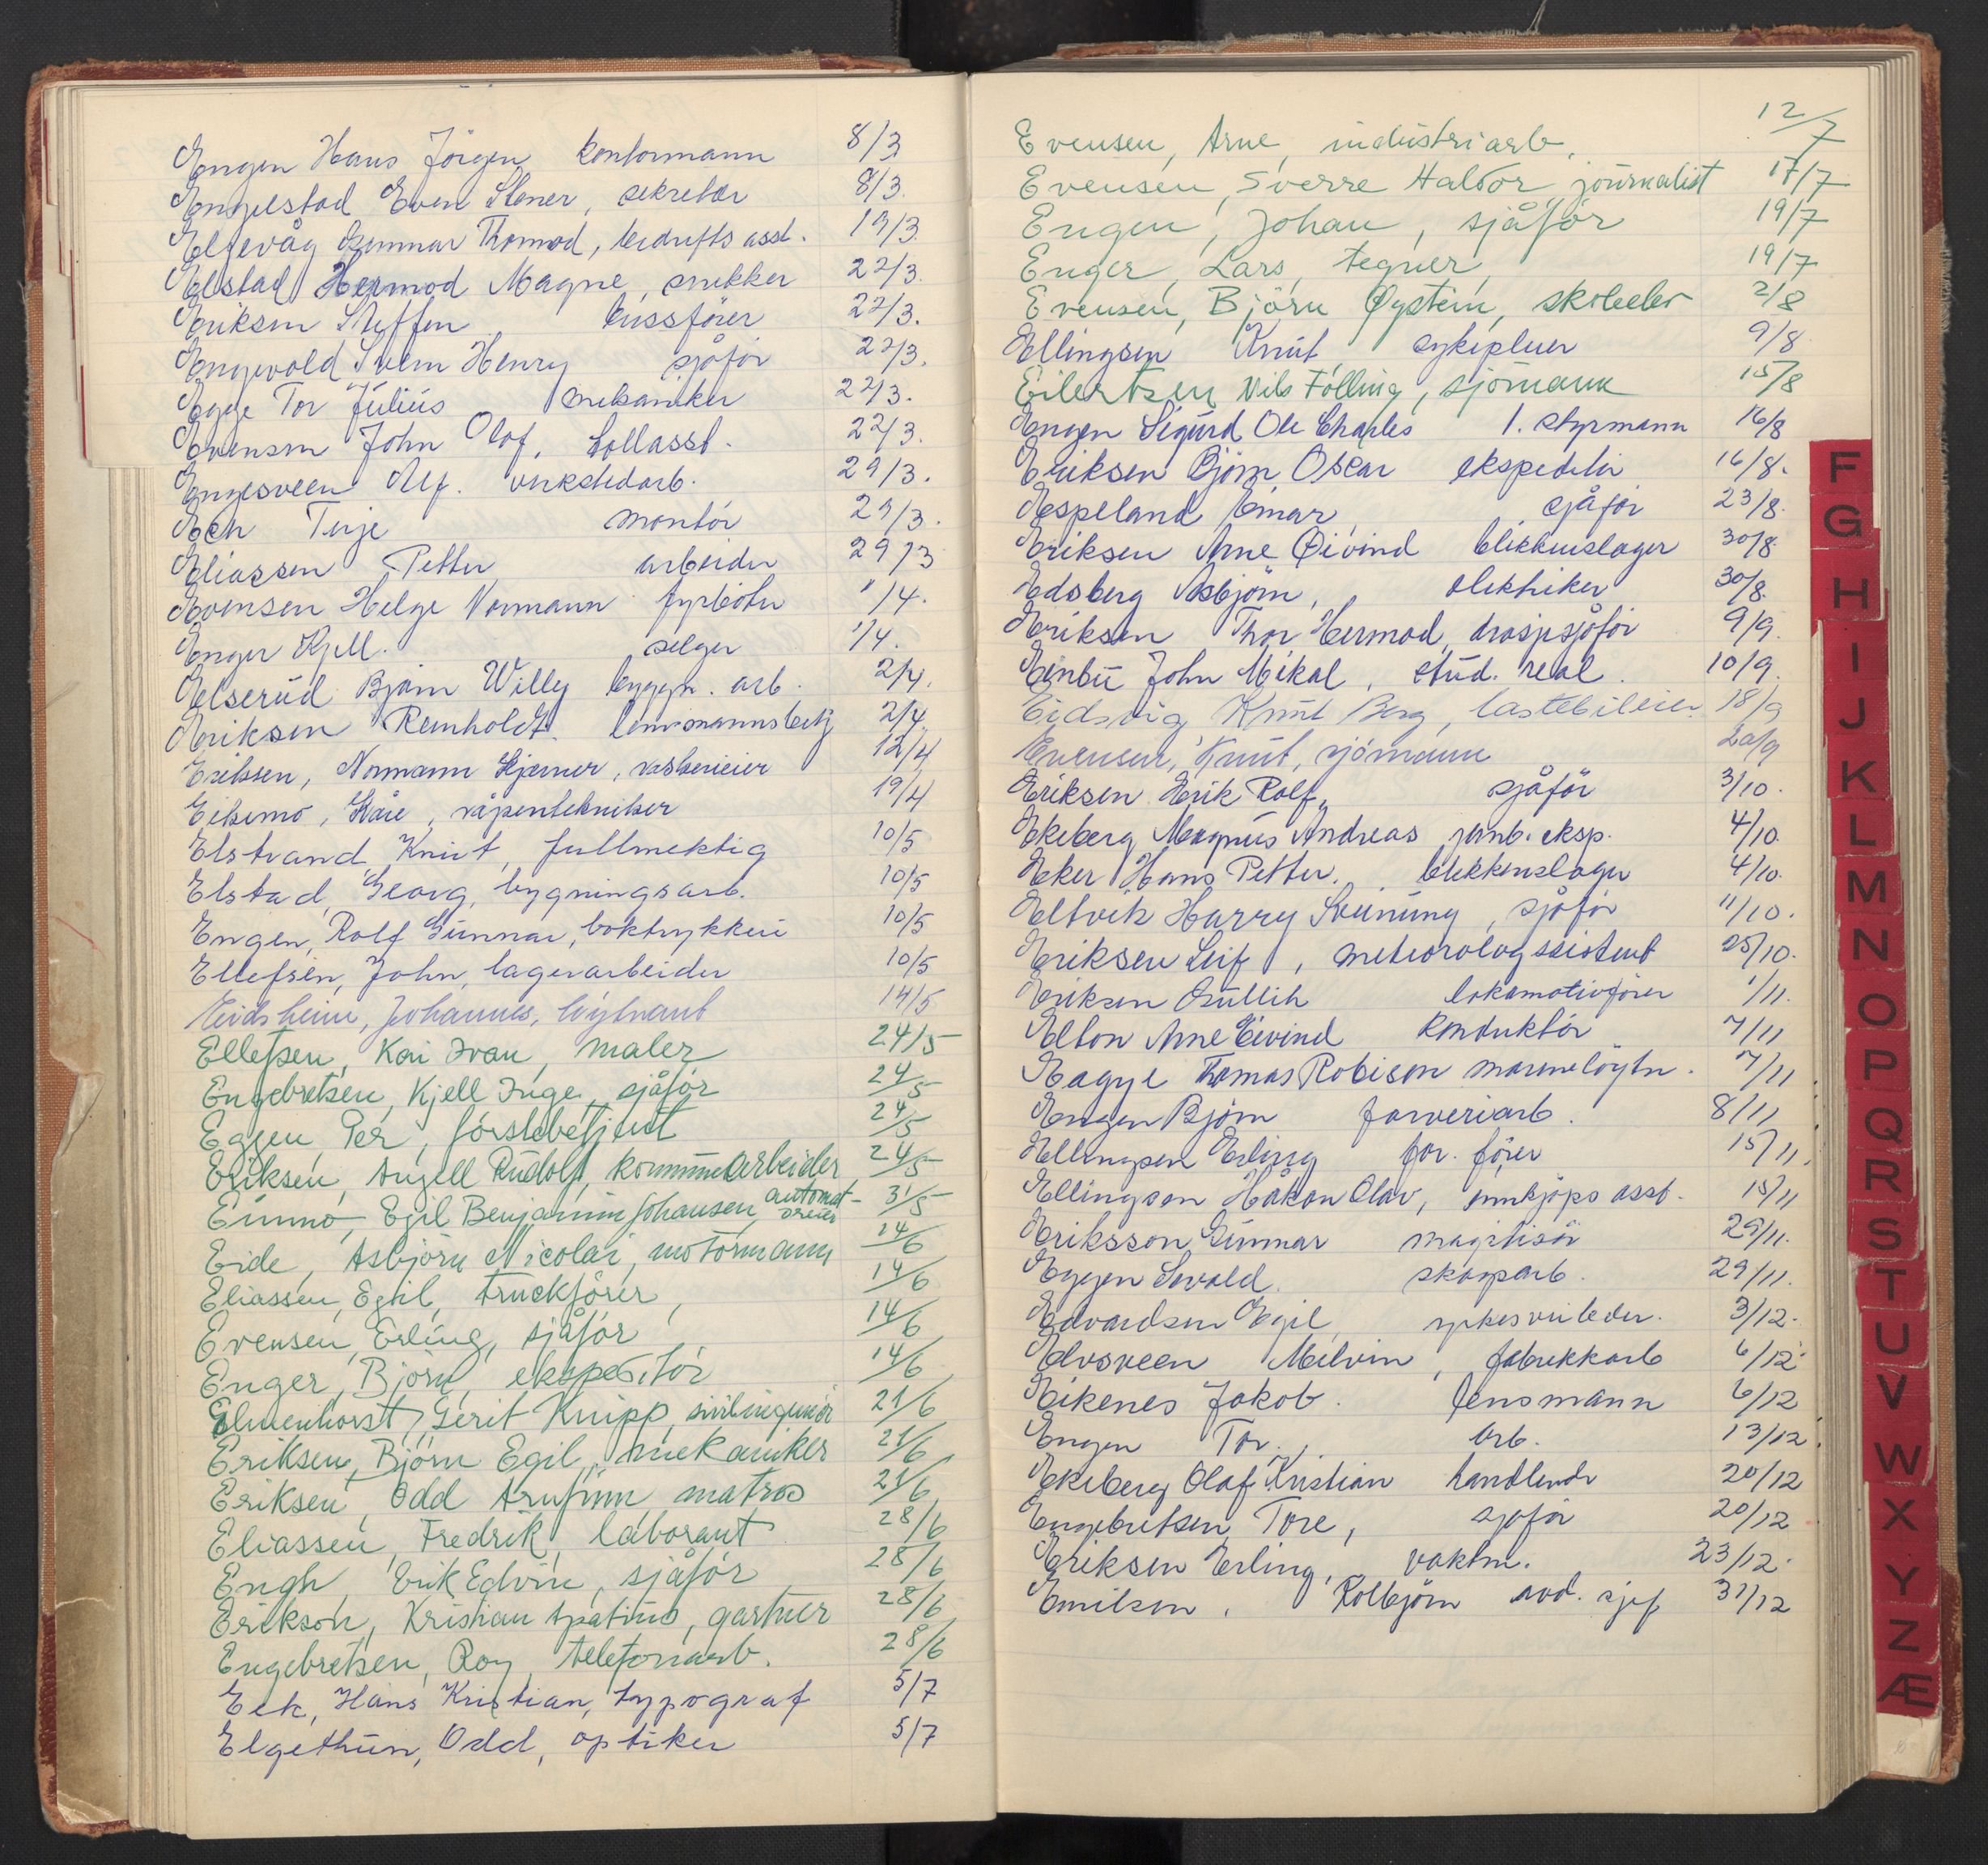 Engen Hans Jörgen kontormann 8/3
Engelstad Even Stener, sekretær 8/3.
Elgevåg Gunnar Thormod, bedriftsasst. 19/3.
Elstad Hermod Magne, snekker 22/3.
Eriksen Steffen, bussförer 22/3.
Engevold Svein Henry sjåför 22/3.
Egge Tor Július mekaniker 22/3.
Evensen John Olaf, tollasst. 22/3.
Engesveen Alf. verkstedarb. 29/3.
Eek Terje montör 29/3.
Eliassen Petter arbeider 29/3
Evensen Helge Normann fyrböter 1/4.
Enger Kjell. selger 1/4.
Elserud Björn Willy bygn. arb. 2/4.
Eriksen Reinholdt. lensmannsbetj 2/4.
Eriksen, Normann Hjerner, vaskerieier 12/4
Eikemo, Kåre, våpentekniker 19/4
Elstrand, Knut, fullmektig 10/5
Elstad, Georg, bygningsarb. 10/5
Engen, Rolf Gunnar, boktrykkeri 10/5
Ellefsen, John, lagerarbeider 10/5
Eidsheim, Johannes, löytnant 14/5
Ellefsen, Kai Ivan, maler 24/5
Engebretsen, Kjell Inge, sjåför 24/5
Eggen, Per, förstebetjent 24/5
Eriksen, Angell Rudolf, kommunearbeider 24/5
Einmo, Egil Benjamin Johansen, automat- 31/5
dreier
Eide, Asbjörn Nicolai, motormann 14/6
Eliassen, Egil, truckförer, 14/6
Evensen, Erling, sjåför 14/6
Enger, Björn, ekspeditör 14/6
Elmenhorst, Gerit Knipp, sivilingeniör 21/6
Eriksen, Björn Egil, mekaniker 21/6
Eriksen, Odd Arnfinn matros 21/6
Eliassen, Fredrik, laborant 28/6
Engh, Erik Edvin, sjåför 28/6
Erikson, Kristian, gartner 28/6
Engebretsen, Roy, telefonarb. 28/6
Eek, Hans Kristian, typograf 5/7
Elgethun, Odd, optiker 5/7
Evensen, Arne, industriarb. 12/7
Evensen, Sverre Haldor, journalist 17/7
Engen, Johan, sjåför 19/7
Enger, Lars, tegner, 19/7
Evensen, Björn Øystein, skoleelev 2/8
Ellingsen Knut, sykepleier 9/8
Eilertsen Nils Fölling, sjömann 15/8
Engen Sigurd Ole Charles 1. styrmann 16/8
Eriksen Björn Oscar ekspeditör 16/8.
Espeland Einar, sjåför 23/8.
Eriksen Arne Øivind blikkenslager 30/8.
Edsberg Asbjörn, elektriker 30/8.
Eriksen Thor Hermod, drosjesjåför 9/9.
Einbu John Mikal, stud. real. 10/9.
Eidsvig, Knut Berg, lastebileier. 18/9
Evensen, Knut, sjömann 20/9
Eriksen Erik Rolf, sjåför 3/10.
Ekeberg Magnus Andreas jernb. eksp. 4/10.
Eker Hans Petter. blikkenslager 4/10.
Eltvik Harry Sveinung, sjåför 11/10.
Eriksen Leif, meteorologssistent 25/10.
Eriksen lokomotivförer 1/11.
Elton Arne Eivind konduktör 7/11
Eagye Thomas Robison marinelöytn. 7/11
Engen Björn farveriarb. 8/11
Ellingsen Erling for. förer 15/11.
Ellingsen Håkon Olav, innkjöps asst. 15/11
Eriksson Gunnar magistör 29/11.
Eggen Sevald. skogsarb. 29/11.
Edvardsen Egil, yrkesveileder. 3/12.
Elvsveen Melvin, fabrikkarb 6/12.
Eikenes Jakob. lensmann 6/12
Engen Tor, arb. 13/12.
Ekeberg Olaf Kristian handlende 20/12
Engebretsen Tore, sjåför 20/12
Eriksen Erling, vaktm. 23/12.
Emilsen, Kolbjörn avd. sjef 31/12
F
G
H
I
J
K
L
M
N
O
P
Q
R
S
T
U
V
W
X
Y
Z
Æ